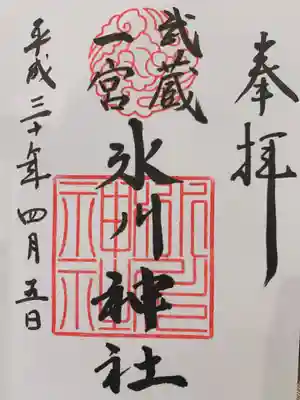 奉拝
武蔵
一宮
氷川神社
平成三十年四月五日
氷川神社